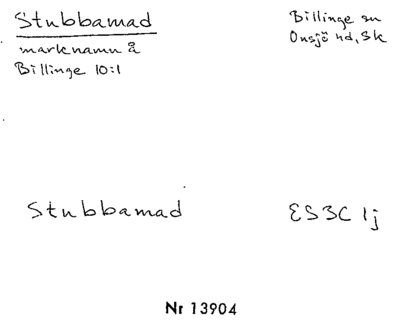 Stubbamad
marknamn å
Billinge 10:1
Billinge sn
Onsjö hd, Sk
Stubbamad
ES3C 1j
Nr 13904